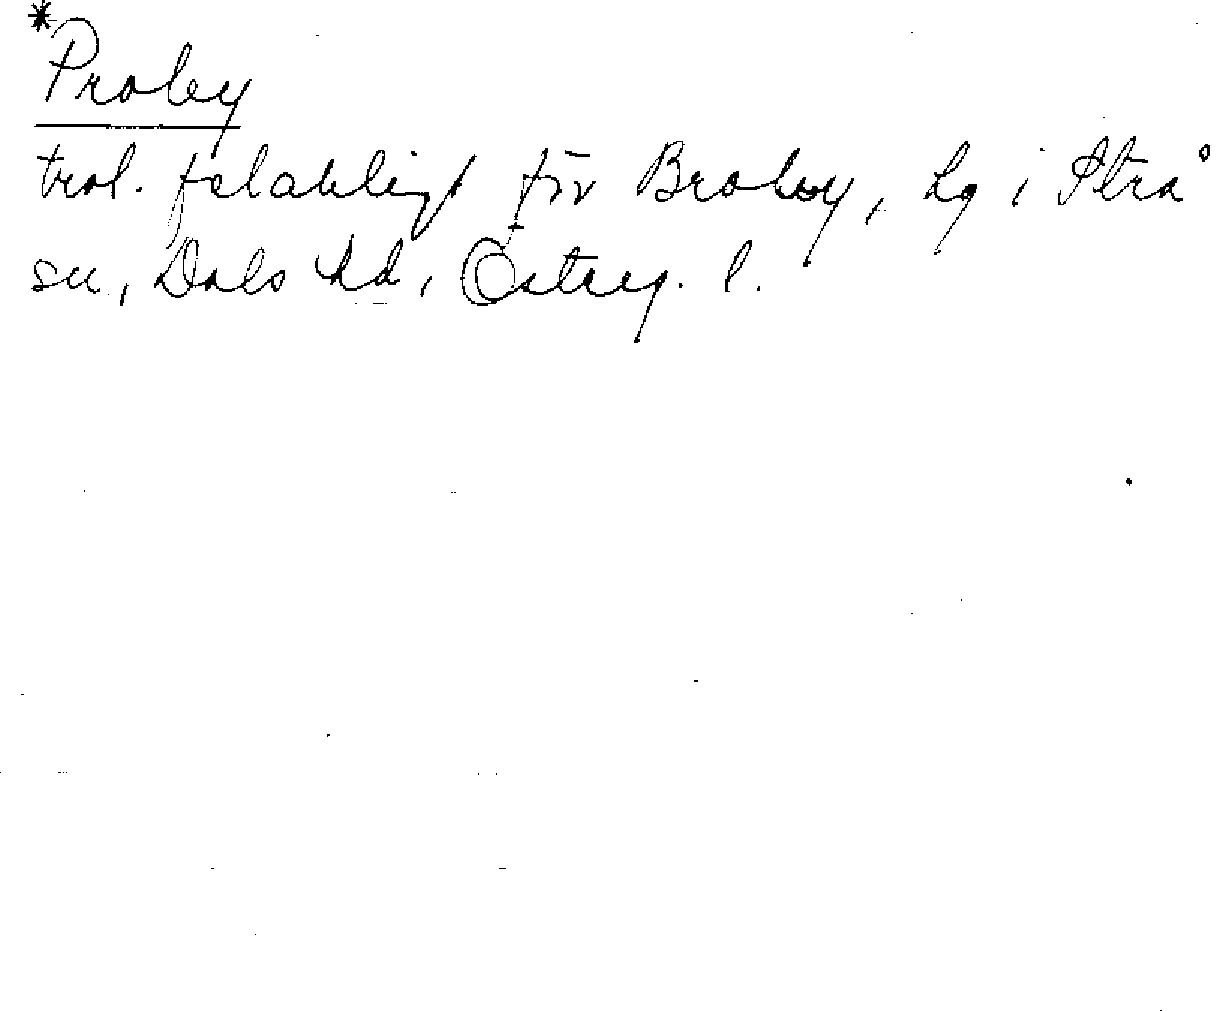 *Proby
trol. felaktigt för Broby, hg i Strå
sn, Dals hd, Österg. l.